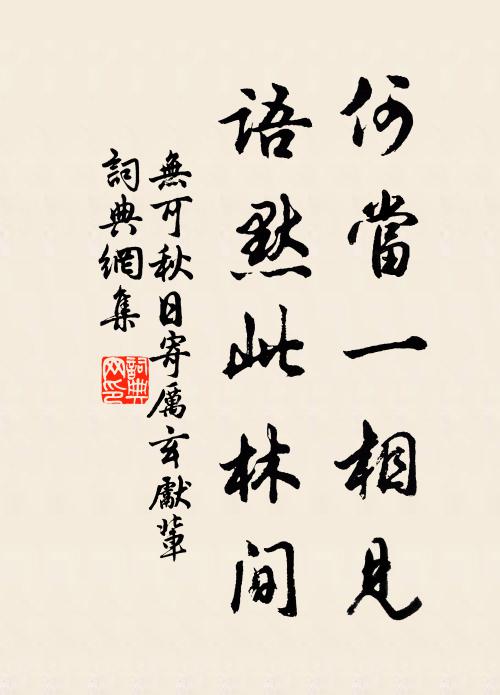 何當一相見
語默此林間
無可秋日寄厲玄獻輩
詞典網集
詞典
网印